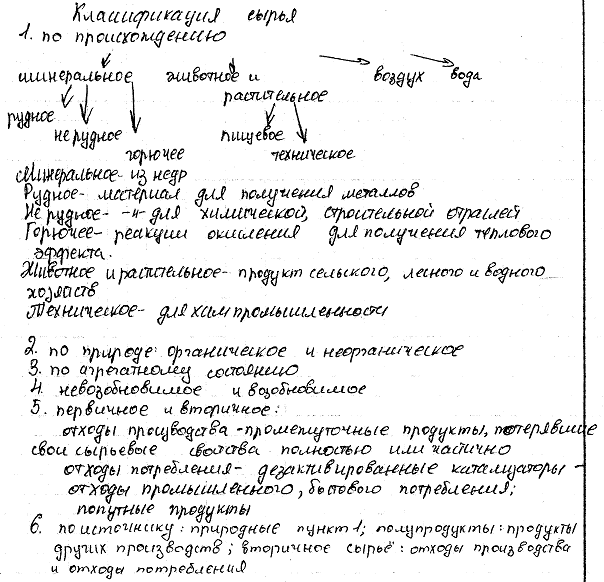 Классификация сырья
1. по происхождению
минеральное животное и воздух вода
растительное
рудное
не рудное пищевое
горючее техническое
Минеральное- из недр
Рудное- материал для получения металлов
Не рудное- -"- для химической, строительной отраслей
Горючее- реакции окисления для получения теплового
эффекта.
Животное и растительное- продукт сельского, лесного и водного
хозяйств
Техническое- для хим промышленности
2. по природе: органическое и неорганическое
3. по агрегатному состоянию
4. невозобновимое и возобновимое
5. первичное и вторичное:
отходы производства - промежуточные продукты, потерявшие
свои сырьевые свойства полностью или частично
отходы потребления- дезактивированные катализаторы -
отходы промышленного, бытового потребления;
попутные продукты
6. по источнику: природные пункт 1; полупродукты: продукты
других производств; вторичное сырьё: отходы производства
и отходы потребления